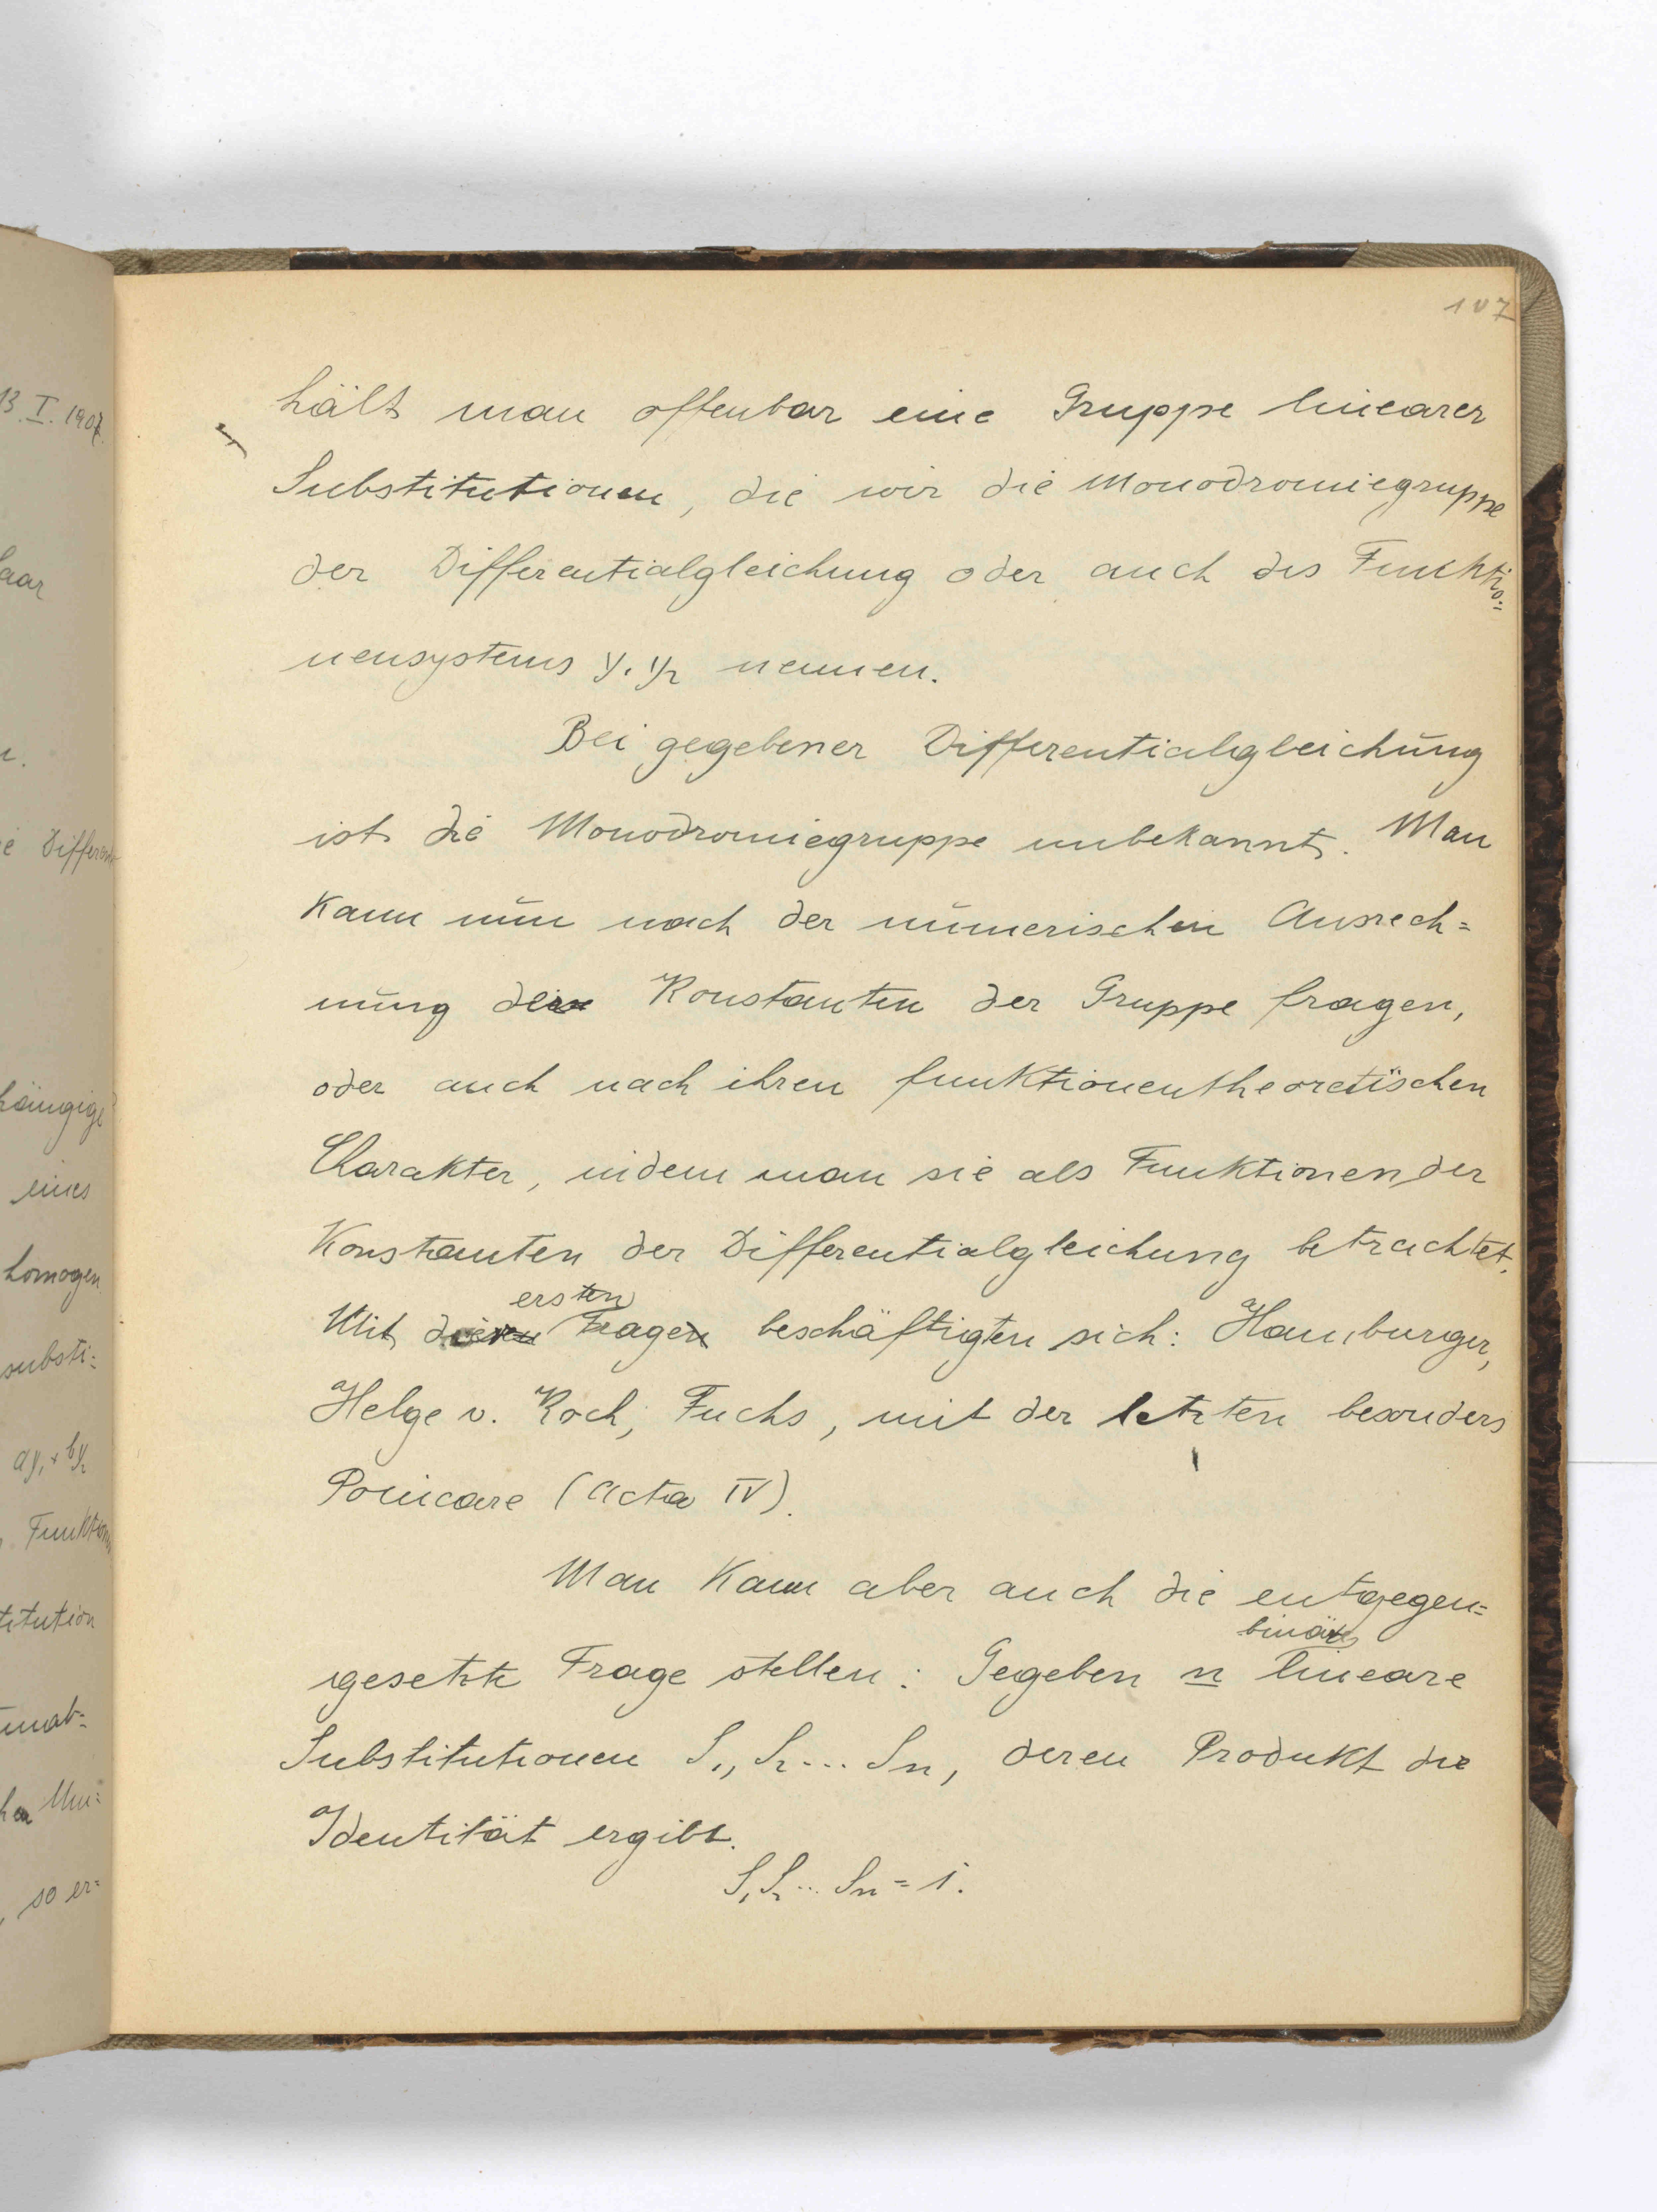 107
hält man offenbar eine Gruppe linearer
Substitutionen, die wir die Monodromiegruppe
der Differentialgleichung oder auch des Funktio=
nensystems y₁ y₂ nennen.
Bei gegebener Differentialgleichung
ist die Monodromiegruppe unbekannt. Man
kann nun nach der numerischen Ausrech=
nung der Konstanten der Gruppe fragen,
oder auch nach ihren funktionentheoretischen
Charakter, indem man sie als Funktionen der
Konstanten der Differentialgleichung betrachtet.
ersten
Mit der Frage beschäftigten sich: Hamburger,
Helge v. Koch, Fuchs, mit der letzten besonders
Poincare (Acta IV).
Man kann aber auch die entgegen=
binäre
gesetzte Frage stellen: Gegeben n lineare
Substitutionen S₁, S₂ ... Sn, deren Produkt die
Identität ergibt.
S₁S₂... Sn = 1.
13. I. 1907.
aar
e Differen
hängige
eines
homogen
substi=
ay₁ + by₂
Funktion
titution
unab=
hen Um=
, so er=